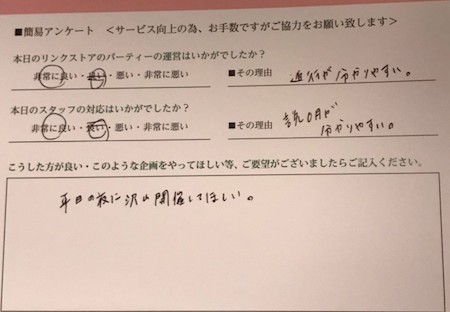 ■簡易アンケート ＜サービス向上の為、お手数ですがご協力をお願い致します＞
本日のリンクストアのパーティーの運営はいかがでしたか？
非常に良い・良い・悪い・非常に悪い ■その理由 進行が分かりやすい。
本日のスタッフの対応はいかがでしたか？
非常に良い・良い・悪い・非常に悪い ■その理由 説明が
分かりやすい。
こうした方が良い・このような企画をやってほしい等、ご要望がございましたらご記入ください。
平日の夜に沢山開催してほしい。